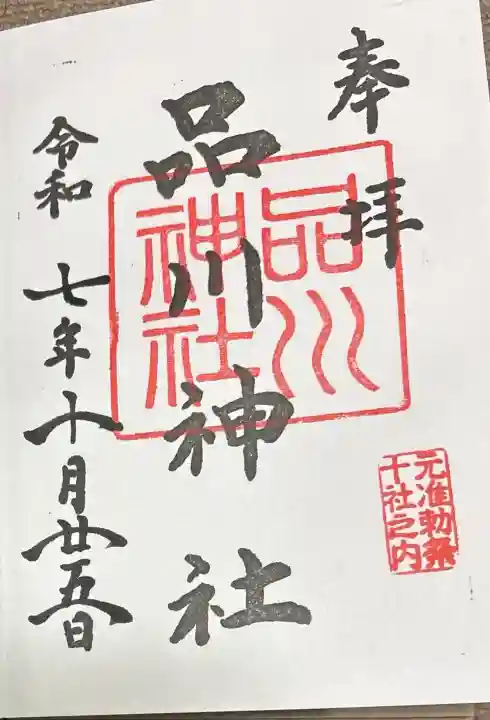 奉拝
品川神社
令和七年十月廿五日
品川
神社
元准勅祭
十社之内